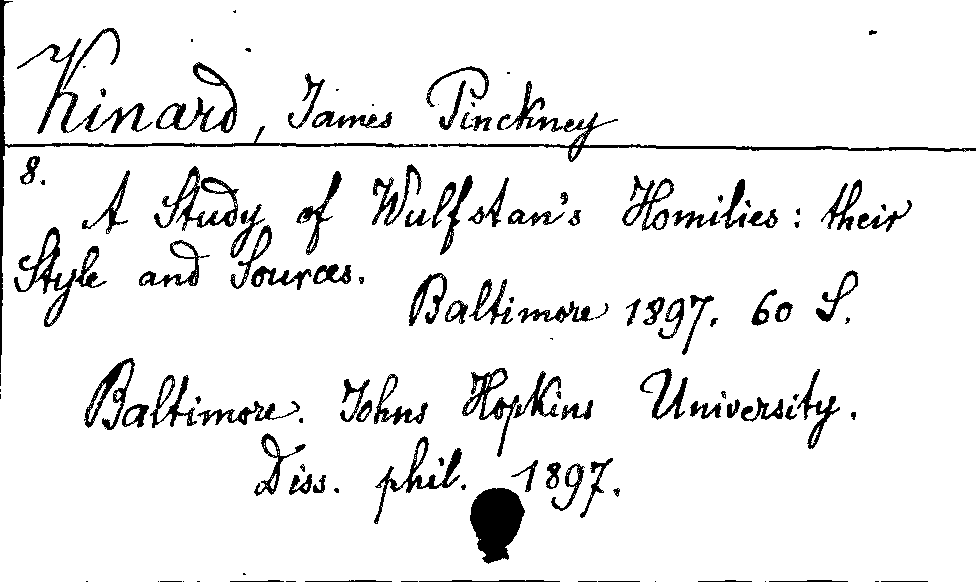 Kinard, James Pinckney
8.
A Study of Wulfstan's Homilies: their
Style and Sources.
Baltimore 1897. 60 S.
Baltimore. Johns Hopkins University.
Diss. phil. 1897.